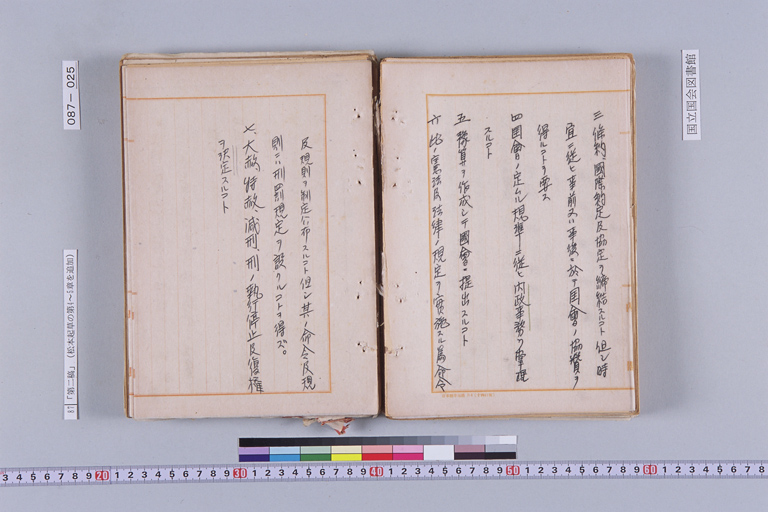 三 條約、國際約定及協定ヲ締結スルコト但シ時
宜ニ從ヒ事前又ハ事後ニ於テ國會ノ協賛ヲ
得ルコトヲ要ス
四 國會ノ定ムル規準ニ從ヒ内政事務ヲ掌理
スルコト
五 豫算ヲ作成シテ國會ニ提出スルコト
六 此ノ憲法及法律ノ規定ヲ實施スル爲命令
及規則ヲ制定公布スルコト但シ其ノ命令及規
則ニハ刑罰規定ヲ設クルコトヲ得ズ。
七、大赦、特赦、減刑、刑ノ執行停止及復權
ヲ決定スルコト
087－025
87「第二稿」(松本起草の第4～5章を追加)
国立国会図書館
3 4 5 6 7 8 9 20 1 2 3 4 5 6 7 8 9 30 1 2 3 4 5 6 7 8 9 40 1 2 3 4 5 6 7 8 9 50 1 2 3 4 5 6 7 8 9 60 1 2 3 4 5 6 7 8